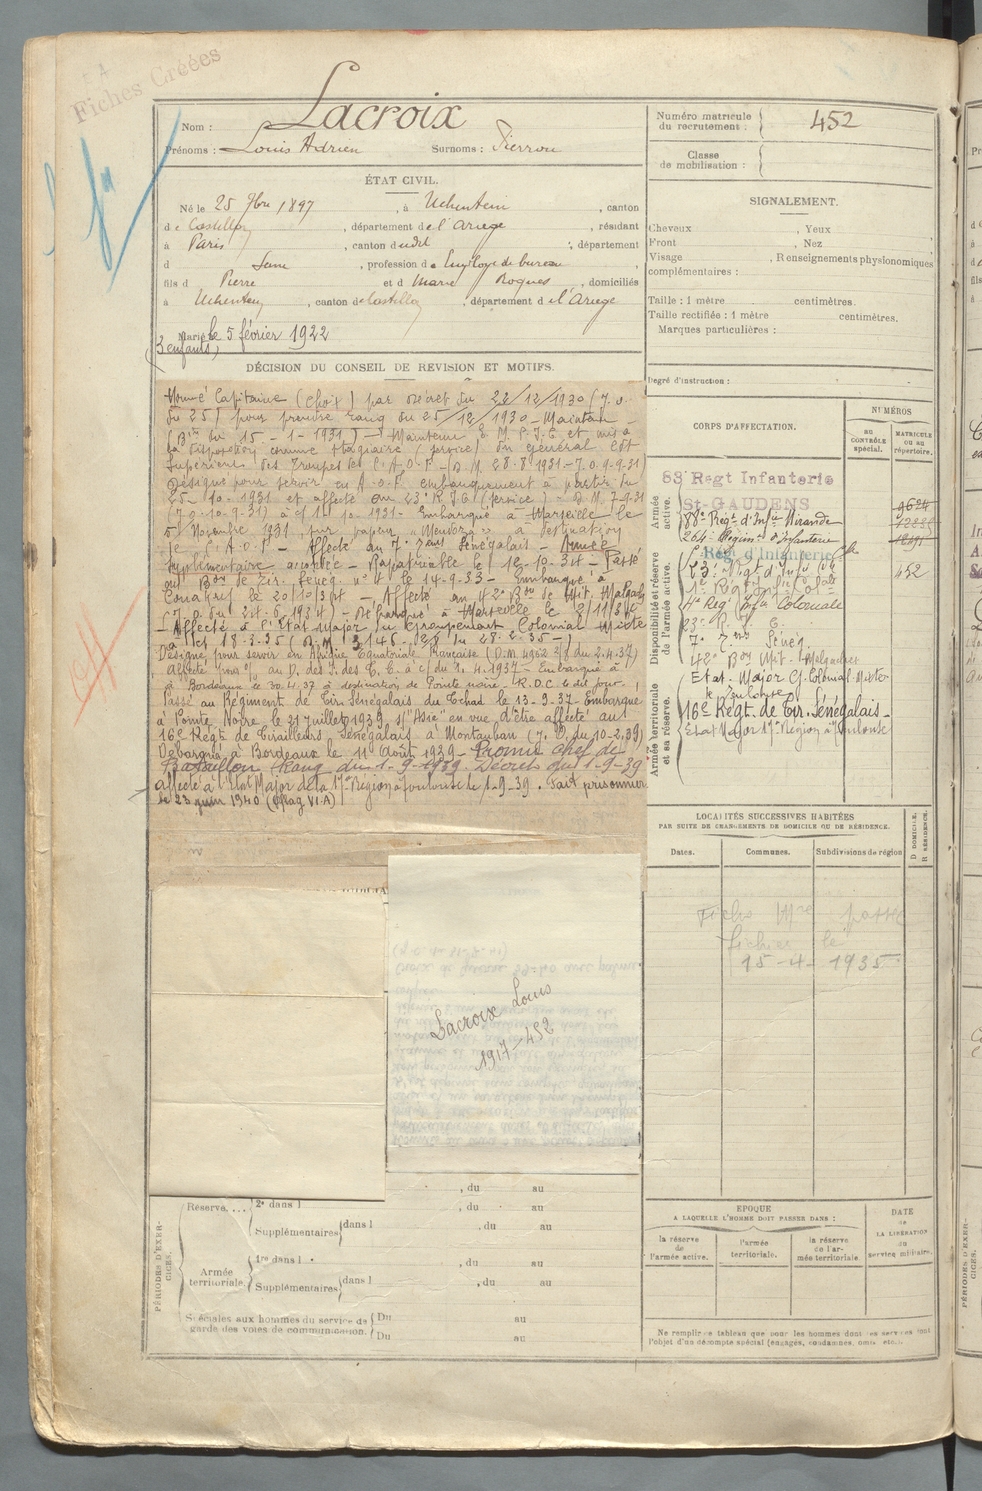 Fiches Créées
Nom : Lacroix
Prénoms : Louis Adrien Surnoms : Pierrou
ÉTAT CIVIL.
Né le 25 9bre 1897, à Uchentein, canton
de Castillon, département de l'Ariège, résidant
à Paris, canton dudit, département
d Seine, profession de Employé de bureau,
fils d Pierre et d Marie Roques, domiciliés
à Uchentein, canton de Castillon, département de l'Ariège
Marié le 5 février 1922
(3 enfants)
DÉCISION DU CONSEIL DE REVISION ET MOTIFS.
Nommé Capitaine (choix) par décret du 22/12/1930 (J.O.
du 25) pour prendre rang du 25/12/1930 - Maintenu
(Bin du 15-1-1931) - Maintenu E.M.P.I.C et mis à
la disposition comme stagiaire (service) du Général Cdt
Supérieur des Troupes de l'A.O.F. (D.M. 28-8-1931 - J.O. 9-9-31)
Désigné pour servir en A.O.F. embarquement à partir du
25-10-1931 et affecté au 23e R.I.C. (service) - D.M. 7-9-31
(J.O. 10-9-31) à c/ 1-10-1931 - Embarqué à Marseille le
5 Novembre 1931 sur vapeur "Mendoza" à destination
de l'A.O.F. - Affecté au 7e Rgt Sénégalais - Année
supplémentaire accordée - Rapatriable le 18-10-34 - Passé
au Bon de Tir. Sénég. n° 4 le 14-9-33 - Embarqué à
Conakry le 20/10/34 - Affecté au 42e Bon de Mit. Malgach
(J.O. du 24.6.1934) - Débarqué à Marseille le 2/11/34
- Affecté à l'Etat Major du Groupement Colonial Mixte
à c/ 18-3-35 (D.M. 3146. 2/8 du 28-2-35-)
Désigné pour servir en Afrique Equatoriale Française (D.M. 4952 2/8 du 2.4.37)
Affecté au D. des I. des T.C. à c/ du 1.4.1937 - Embarqué à
à Bordeaux le 30.4.37 à destination de Pointe noire - R.D.C. le dit jour.
Passé au Régiment de Tir. Sénégalais du Tchad le 13-9-37. Embarqué
à Pointe Noire le 21 Juillet 1939 s/ "Asie" en vue d'être affecté au
16e Régt de Tirailleurs Sénégalais à Montauban (J.O. du 10-2-39)
Débarqué à Bordeaux le 11 Août 1939 - Promu chef de
Bataillon (Rang du 1-9-1939. Décret du 1-9-39
affecté à l'Etat Major de la 17e Région à Toulouse le 1-9-39. Fait prisonnier
le 23 juin 1940 (Oflag VI.A)
Lacroix Louis
1917-452
, du au
Réserve.... 2e dans l , du au
Supplémentaires dans l , du au
1re dans l , du au
Armée territoriale.
Supplémentaires dans l , du au
Spéciales aux hommes du service de Du au
garde des voies de communication. Du au
PÉRIODES D'EXERCICES.
Numéro matricule
du recrutement : 452
Classe
de mobilisation :
SIGNALEMENT.
Cheveux , Yeux ,
Front , Nez
Visage , Renseignements physionomiques
complémentaires :
Taille : 1 mètre centimètres.
Taille rectifiée : 1 mètre centimètres.
Marques particulières :
Degré d'instruction :
CORPS D'AFFECTATION.
NUMÉROS
AU CONTRÔLE spécial.
MATRICULE OU AU répertoire.
Armée active.
83e Regt Infanterie
St-GAUDENS 9624
88e Régt d'Infie Mirande
264e Régim. d'Infanterie
Régt d'Infanterie Cle
Disponibilité et réserve de l'armée active.
23e Régt d'Infie Cle 452
1er Régt Infie Cole
4e Reg Infie Coloniale
23e R.I.C.
7e Sénég.
42e Bon Mit. Malgaches
Armée territoriale et sa réserve.
Etat-Major G. Colonial Mixte
de Toulouse
16e Régt. de Tir. Sénégalais
Etat Major 17e Région à Toulouse
LOCALITÉS SUCCESSIVES HABITÉES
PAR SUITE DE CHANGEMENTS DE DOMICILE OU DE RÉSIDENCE.
Dates. Communes. Subdivisions de région D DOMICILE. R RÉSIDENCE.
Fiche Mle passée
fichier le
15-4-1935
EPOQUE
A LAQUELLE L'HOMME DOIT PASSER DANS :
la réserve de l'armée active. l'armée territoriale. la réserve de l'armée territoriale.
DATE de LA LIBÉRATION du service militaire.
Ne remplir ce tableau que pour les hommes dont les services font
l'objet d'un décompte spécial (engagés, condamnés, omis, etc.).